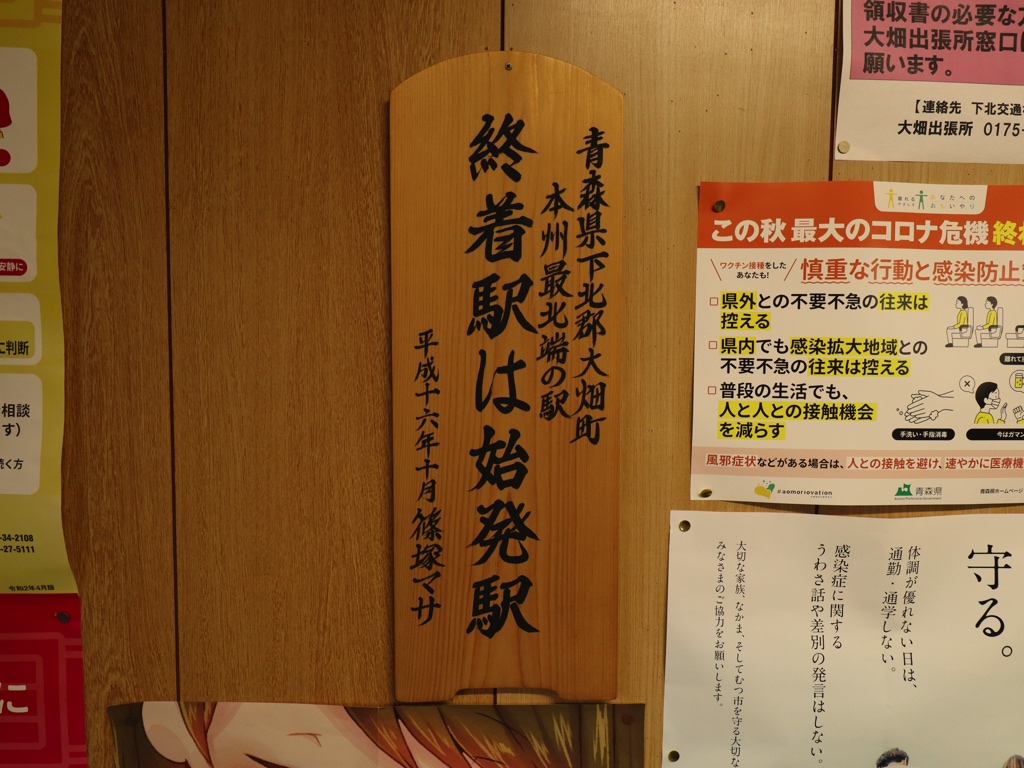 青森県下北郡大畑町
本州最北端の駅
終着駅は始発駅
平成十六年十月 篠塚マサ
領収書の必要な
大畑出張所窓口
願います。
【連絡先 下北交通
大畑出張所 0175-
この秋 最大のコロナ危機
ワクチン接種をした
あなたも!
慎重な行動と感染防止
□県外との不要不急の往来は
控える
□県内でも感染拡大地域との
不要不急の往来は控える
□普段の生活でも、
人と人との接触機会
を減らす
手洗い・手指消毒
今はガマン
風邪症状などがある場合は、人との接触を避け、速やかに医療機
#aomoriovation
青森県
青森県ホームページ
守る。
体調が優れない日は、
通勤・通学しない。
感染症に関する
うわさ話や差別の発言はしない。
大切な家族、なかま、そしてむつ市を守る大切な
みなさまのご協力をお願いします。
安静に
に判断
相談
す)
続く方
-34-2108
-27-5111
令和2年4月版
に